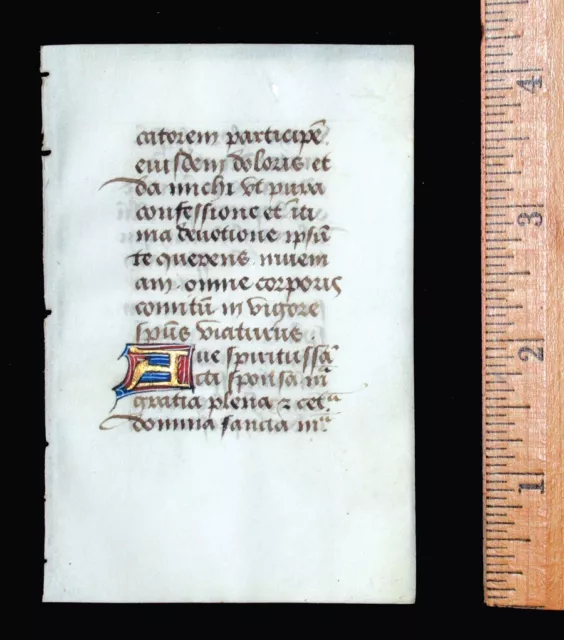 catorem participē
eiusdem doloris et
da michi vt pura
confessione et īti
ma deuotione ipsū
te querens inueni
am. omne corporis
comitū in vigore
spūs viaturus.
Aue spiritussā
cti sponsa mᵃ
gratia plena ⁊ cetᵃ
domina sancta mᵃ
4
3
2
1